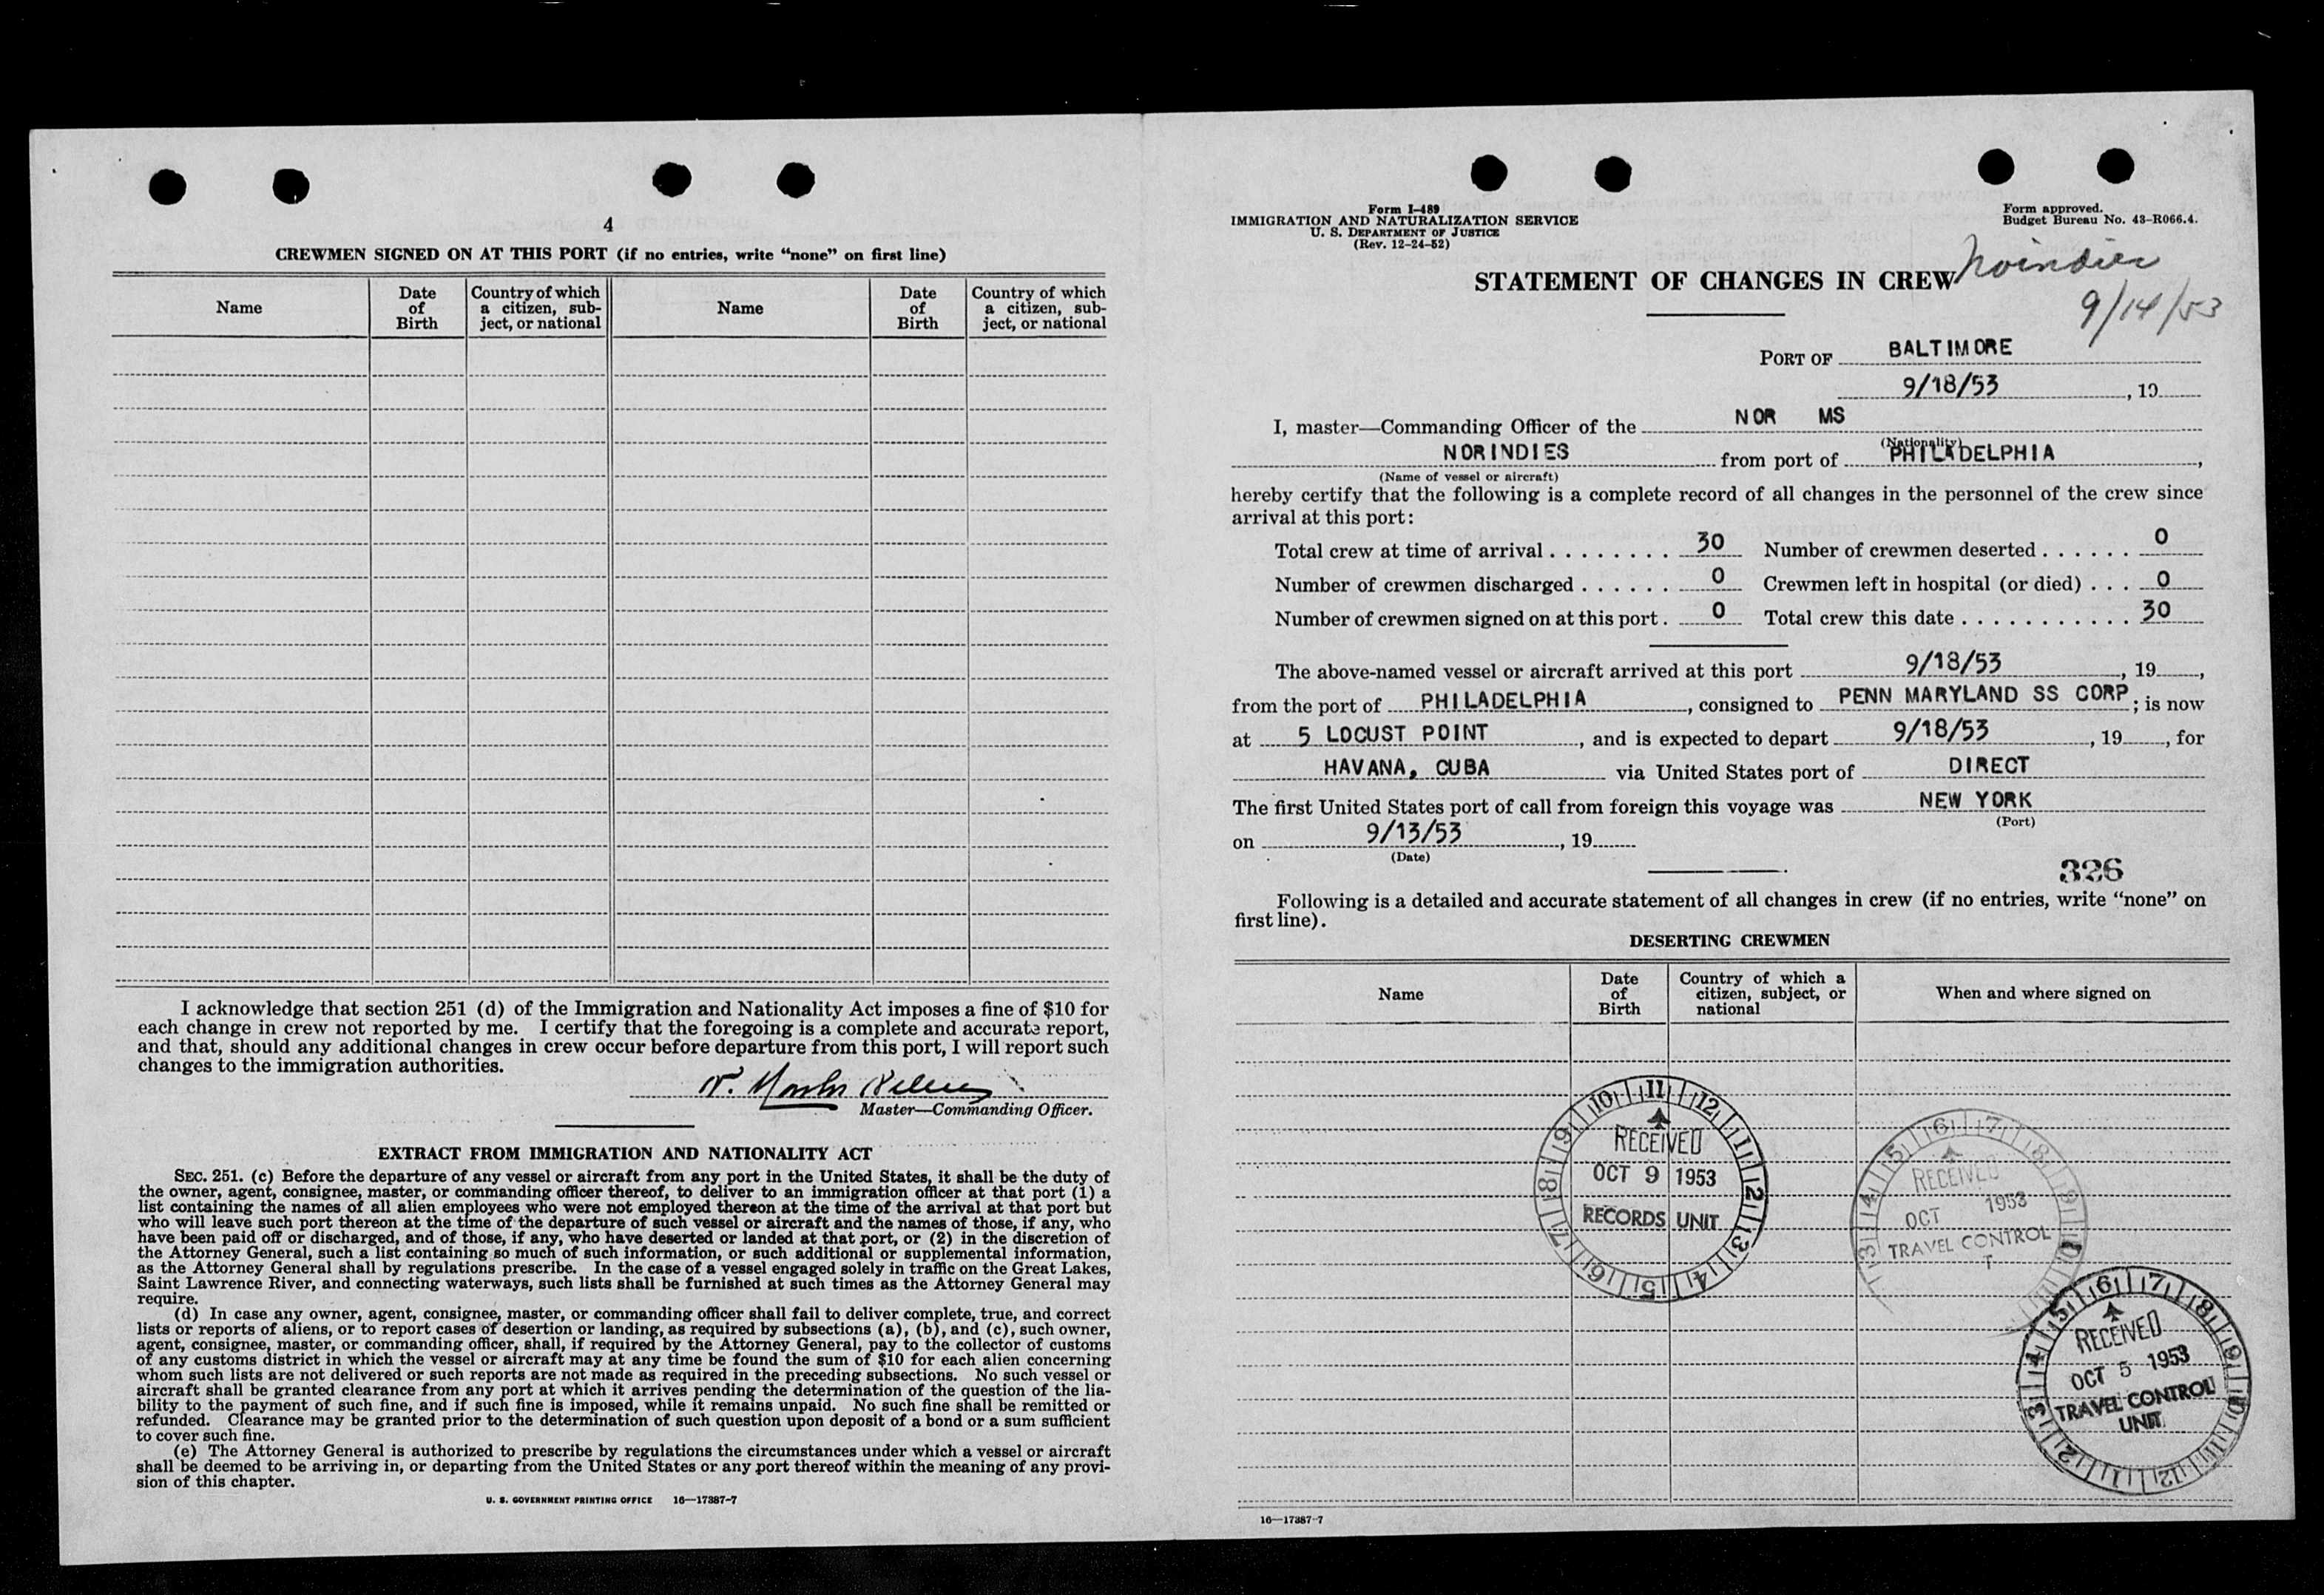 4
CREWMEN SIGNED ON AT THIS PORT (if no entries, write “none” on first line)
Name
Date of Birth
Country of which a citizen, subject, or national
Name
Date of Birth
Country of which a citizen, subject, or national
I acknowledge that section 251 (d) of the Immigration and Nationality Act imposes a fine of $10 for
each change in crew not reported by me. I certify that the foregoing is a complete and accurate report,
and that, should any additional changes in crew occur before departure from this port, I will report such
changes to the immigration authorities.
Master—Commanding Officer.
EXTRACT FROM IMMIGRATION AND NATIONALITY ACT
SEC. 251. (c) Before the departure of any vessel or aircraft from any port in the United States, it shall be the duty of
the owner, agent, consignee, master, or commanding officer thereof, to deliver to an immigration officer at that port (1) a
list containing the names of all alien employees who were not employed thereon at the time of the arrival at that port but
who will leave such port thereon at the time of the departure of such vessel or aircraft and the names of those, if any, who
have been paid off or discharged, and of those, if any, who have deserted or landed at that port, or (2) in the discretion of
the Attorney General, such a list containing so much of such information, or such additional or supplemental information,
as the Attorney General shall by regulations prescribe. In the case of a vessel engaged solely in traffic on the Great Lakes,
Saint Lawrence River, and connecting waterways, such lists shall be furnished at such times as the Attorney General may
require.
(d) In case any owner, agent, consignee, master, or commanding officer shall fail to deliver complete, true, and correct
lists or reports of aliens, or to report cases of desertion or landing, as required by subsections (a), (b), and (c), such owner,
agent, consignee, master, or commanding officer, shall, if required by the Attorney General, pay to the collector of customs
of any customs district in which the vessel or aircraft may at any time be found the sum of $10 for each alien concerning
whom such lists are not delivered or such reports are not made as required in the preceding subsections. No such vessel or
aircraft shall be granted clearance from any port at which it arrives pending the determination of the question of the lia-
bility to the payment of such fine, and if such fine is imposed, while it remains unpaid. No such fine shall be remitted or
refunded. Clearance may be granted prior to the determination of such question upon deposit of a bond or a sum sufficient
to cover such fine.
(e) The Attorney General is authorized to prescribe by regulations the circumstances under which a vessel or aircraft
shall be deemed to be arriving in, or departing from the United States or any port thereof within the meaning of any provi-
sion of this chapter.
U. S. GOVERNMENT PRINTING OFFICE 16—17387-7
Form I-489
IMMIGRATION AND NATURALIZATION SERVICE
U. S. DEPARTMENT OF JUSTICE
(Rev. 12-24-52)
Form approved.
Budget Bureau No. 43-R066.4.
STATEMENT OF CHANGES IN CREW
9/14/53
PORT OF BALTIMORE
9/18/53, 19
I, master—Commanding Officer of the NOR MS
(Nationality)
NORINDIES from port of PHILADELPHIA,
(Name of vessel or aircraft)
hereby certify that the following is a complete record of all changes in the personnel of the crew since
arrival at this port:
Total crew at time of arrival . . . . . . . . 30 Number of crewmen deserted . . . . . . 0
Number of crewmen discharged . . . . . . 0 Crewmen left in hospital (or died) . . . 0
Number of crewmen signed on at this port . 0 Total crew this date . . . . . . . . . . . 30
The above-named vessel or aircraft arrived at this port 9/18/53, 19,
from the port of PHILADELPHIA, consigned to PENN MARYLAND SS CORP; is now
at 5 LOCUST POINT, and is expected to depart 9/18/53, 19, for
HAVANA, CUBA via United States port of DIRECT
The first United States port of call from foreign this voyage was NEW YORK
(Port)
on 9/13/53, 19
(Date)
326
Following is a detailed and accurate statement of all changes in crew (if no entries, write “none” on
first line).
DESERTING CREWMEN
Name
Date of Birth
Country of which a citizen, subject, or national
When and where signed on
RECEIVED
OCT 9 1953
RECORDS UNIT
RECEIVED
OCT 1953
TRAVEL CONTROL
RECEIVED
OCT 5 1953
TRAVEL CONTROL
UNIT
16—17387-7